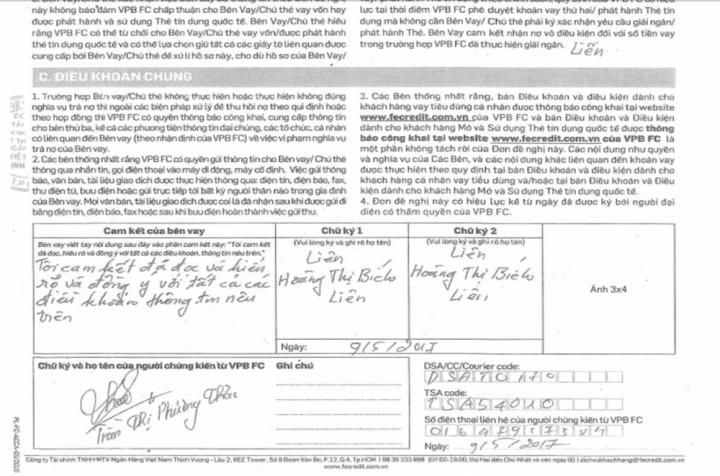 này không báo đảm VPB FC chấp thuận cho Bên Vay/Chủ thẻ vay vốn hay
được phát hành và sử dụng Thẻ tín dụng quốc tế. Bên Vay/Chủ thẻ hiểu
rằng VPB FC có thể từ chối cho Bên Vay/Chủ thẻ vay vốn/được phát hành
thẻ tín dụng quốc tế và có thể lựa chọn giữ tất cả các giấy tờ liên quan được
cung cấp bởi Bên Vay/Chủ thẻ để xử lí hồ sơ này, cho dù hồ sơ của Bên Vay/
lực tại thời điểm VPB FC phê duyệt khoản vay thứ hai/ phát hành Thẻ tín
dụng mà không cần Bên Vay/ Chủ thẻ phải ký xác nhận yêu cầu giải ngân/
phát hành Thẻ. Bên Vay cam kết nhận nợ vô điều kiện đối với số tiền vay
trong trường hợp VPB FC đã thực hiện giải ngân.
Liên
C. ĐIỀU KHOẢN CHUNG
1. Trường hợp Bên vay/Chủ thẻ không thực hiện hoặc thực hiện không đúng
nghĩa vụ trả nợ thì ngoài các biện pháp xử lý để thu hồi nợ theo qui định hoặc
theo hợp đồng thì VPB FC có quyền thông báo công khai, cung cấp thông tin
cho bên thứ ba, kể cả các phương tiện thông tin đại chúng, các tổ chức, cá nhân
có liên quan đến Bên vay (theo nhận định của VPB FC) về việc vi phạm nghĩa vụ
trả nợ của Bên vay.
2. Các bên thống nhất rằng VPB FC có quyền gửi thông tin cho Bên vay/ Chủ thẻ
thông qua nhắn tin, gọi điện thoại vào máy di động, máy cố định. Việc gửi thông
báo, văn bản, tài liệu giao dịch được thực hiện thông qua: điện tín, điện báo, fax,
thư điện tử, bưu điện hoặc gửi trực tiếp tới bất kỳ người thân nào trong gia đình
của Bên vay. Mọi văn bản, tài liệu giao dịch được coi là đã nhận sau khi được gửi đi
bằng điện tín, điện báo, fax hoặc sau khi bưu điện hoàn thành việc gửi thư.
3. Các Bên thống nhất rằng, bản Điều khoản và điều kiện dành cho
khách hàng vay tiêu dùng cá nhân được thông báo công khai tại website
www.fecredit.com.vn của VPB FC và bản Điều khoản và Điều kiện
dành cho khách hàng Mở và Sử Dụng Thẻ tín dụng quốc tế được thông
báo công khai tại website www.fecredit.com.vn của VPB FC là
một phần không tách rời của Đơn đề nghị này. Các nội dung như quyền
và nghĩa vụ của Các Bên, và các nội dung khác liên quan đến khoản vay
được thực hiện theo quy định tại bản Điều khoản và điều kiện dành cho
khách hàng cá nhân vay tiêu dùng và/hoặc tại bản Điều khoản và Điều
kiện dành cho khách hàng Mở và Sử dụng Thẻ tín dụng quốc tế.
4. Đơn đề nghị này có hiệu lực kể từ ngày đã được ký bởi người đại
diện có thẩm quyền của VPB FC.
Cam kết của bên vay
Bên vay viết tay nội dung sau đây vào phần cam kết này: "Tôi cam kết
đã đọc, hiểu rõ và đồng ý với tất cả các điều khoản, thông tin nêu trên."
Tôi cam kết đã đọc và hiểu
rõ và đồng ý với tất cả các
điều khoản thông tin nêu
trên
Chữ ký 1
(Vui lòng ký và ghi rõ họ tên)
Liên
Hoàng Thị Bích
Liên
Chữ ký 2
(Vui lòng ký và ghi rõ họ tên)
Liên
Hoàng Thị Bích
Liên
Ảnh 3x4
Ngày: 9/5/2017
Chữ ký và họ tên của người chứng kiến từ VPB FC
Trần Thị Phương Thảo
Ghi chú
DSA/CC/Courier code:
DSAT0179
TSA code:
TSA54010
Số điện thoại liên hệ của người chứng kiến từ VPB FC
Ngày: 9/5/2017
Công ty Tài chính TNHH MTV Ngân Hàng Việt Nam Thịnh Vượng - Lầu 2, REE Tower, Số 9 Đoàn Văn Bơ, P.12, Q.4, Tp.HCM
www.fecredit.com.vn